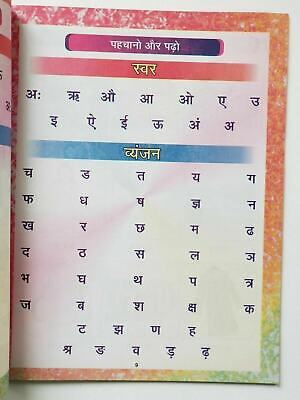 पहचानो और पढ़ो
स्वर
अः ऋ औ आ ओ ए उ
इ ऐ ई ऊ अं अ
व्यंजन
च ड त य ग
फ ध ष ज्ञ न
ख र छ म ढ
द ठ स ल ञ
भ घ थ प त्र
ज ब श क्ष क
ट झ ण ह
श्र ङ व ड़ ढ़
9